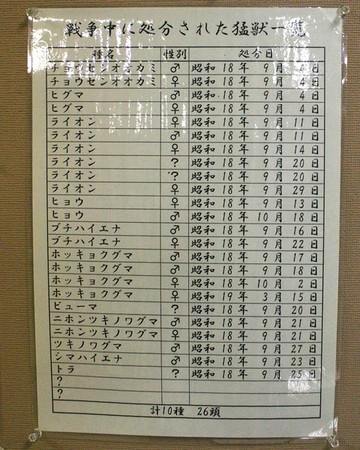 戦争中に処分された猛獣一覧
種名 性別 処分日
チョウセンオオカミ ♂ 昭和 18 年 9 月 4 日
チョウセンオオカミ ♀ 昭和 18 年 9 月 4 日
ヒグマ ♂ 昭和 18 年 9 月 4 日
ヒグマ ♀ 昭和 18 年 9 月 4 日
ライオン ♂ 昭和 18 年 9 月 11 日
ライオン ♀ 昭和 18 年 9 月 11 日
ライオン ♀ 昭和 18 年 9 月 14 日
ライオン ? 昭和 18 年 9 月 20 日
ライオン ? 昭和 18 年 9 月 20 日
ライオン ♀ 昭和 18 年 9 月 29 日
ヒョウ ♀ 昭和 18 年 9 月 13 日
ヒョウ ♂ 昭和 18 年 10 月 18 日
ブチハイエナ ♂ 昭和 18 年 9 月 16 日
ブチハイエナ ♀ 昭和 18 年 9 月 22 日
ホッキョクグマ ♂ 昭和 18 年 9 月 17 日
ホッキョクグマ ♂ 昭和 18 年 9 月 18 日
ホッキョクグマ ♀ 昭和 18 年 10 月 2 日
ホッキョクグマ ♀ 昭和 19 年 3 月 15 日
ピューマ ? 昭和 18 年 9 月 20 日
ニホンツキノワグマ ♂ 昭和 18 年 9 月 21 日
ニホンツキノワグマ ♀ 昭和 18 年 9 月 21 日
ツキノワグマ ♂ 昭和 18 年 9 月 27 日
シマハイエナ ♂ 昭和 18 年 9 月 23 日
トラ ? 昭和 18 年 9 月 25 日
?
?
計10種 26頭